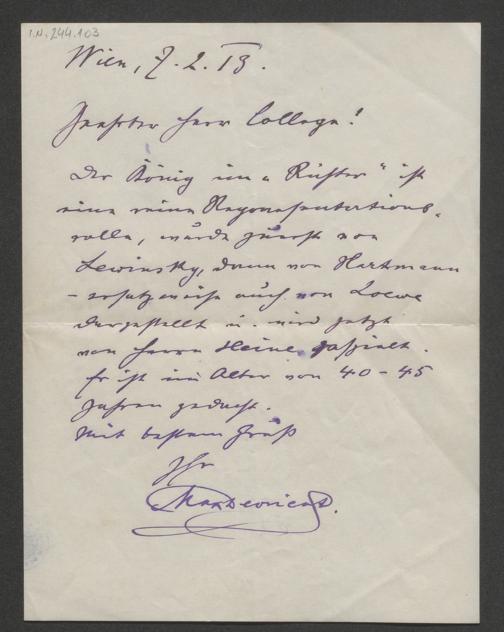 I.N. 244.103
Wien, 7. 2. 13.
Geehrter Herr College!
Der König im „Richter" ist
eine reine Repräsentations-
rolle, wurde zuerst von
Lewinsky, dann von Hartmann
– ersatzweise auch von Loewe
dargestellt u. wird jetzt
von Herrn Heine gespielt.
Er ist im Alter von 40 – 45
Jahren gedacht.
Mit bestem Gruß
Ihr
Max Devrient.